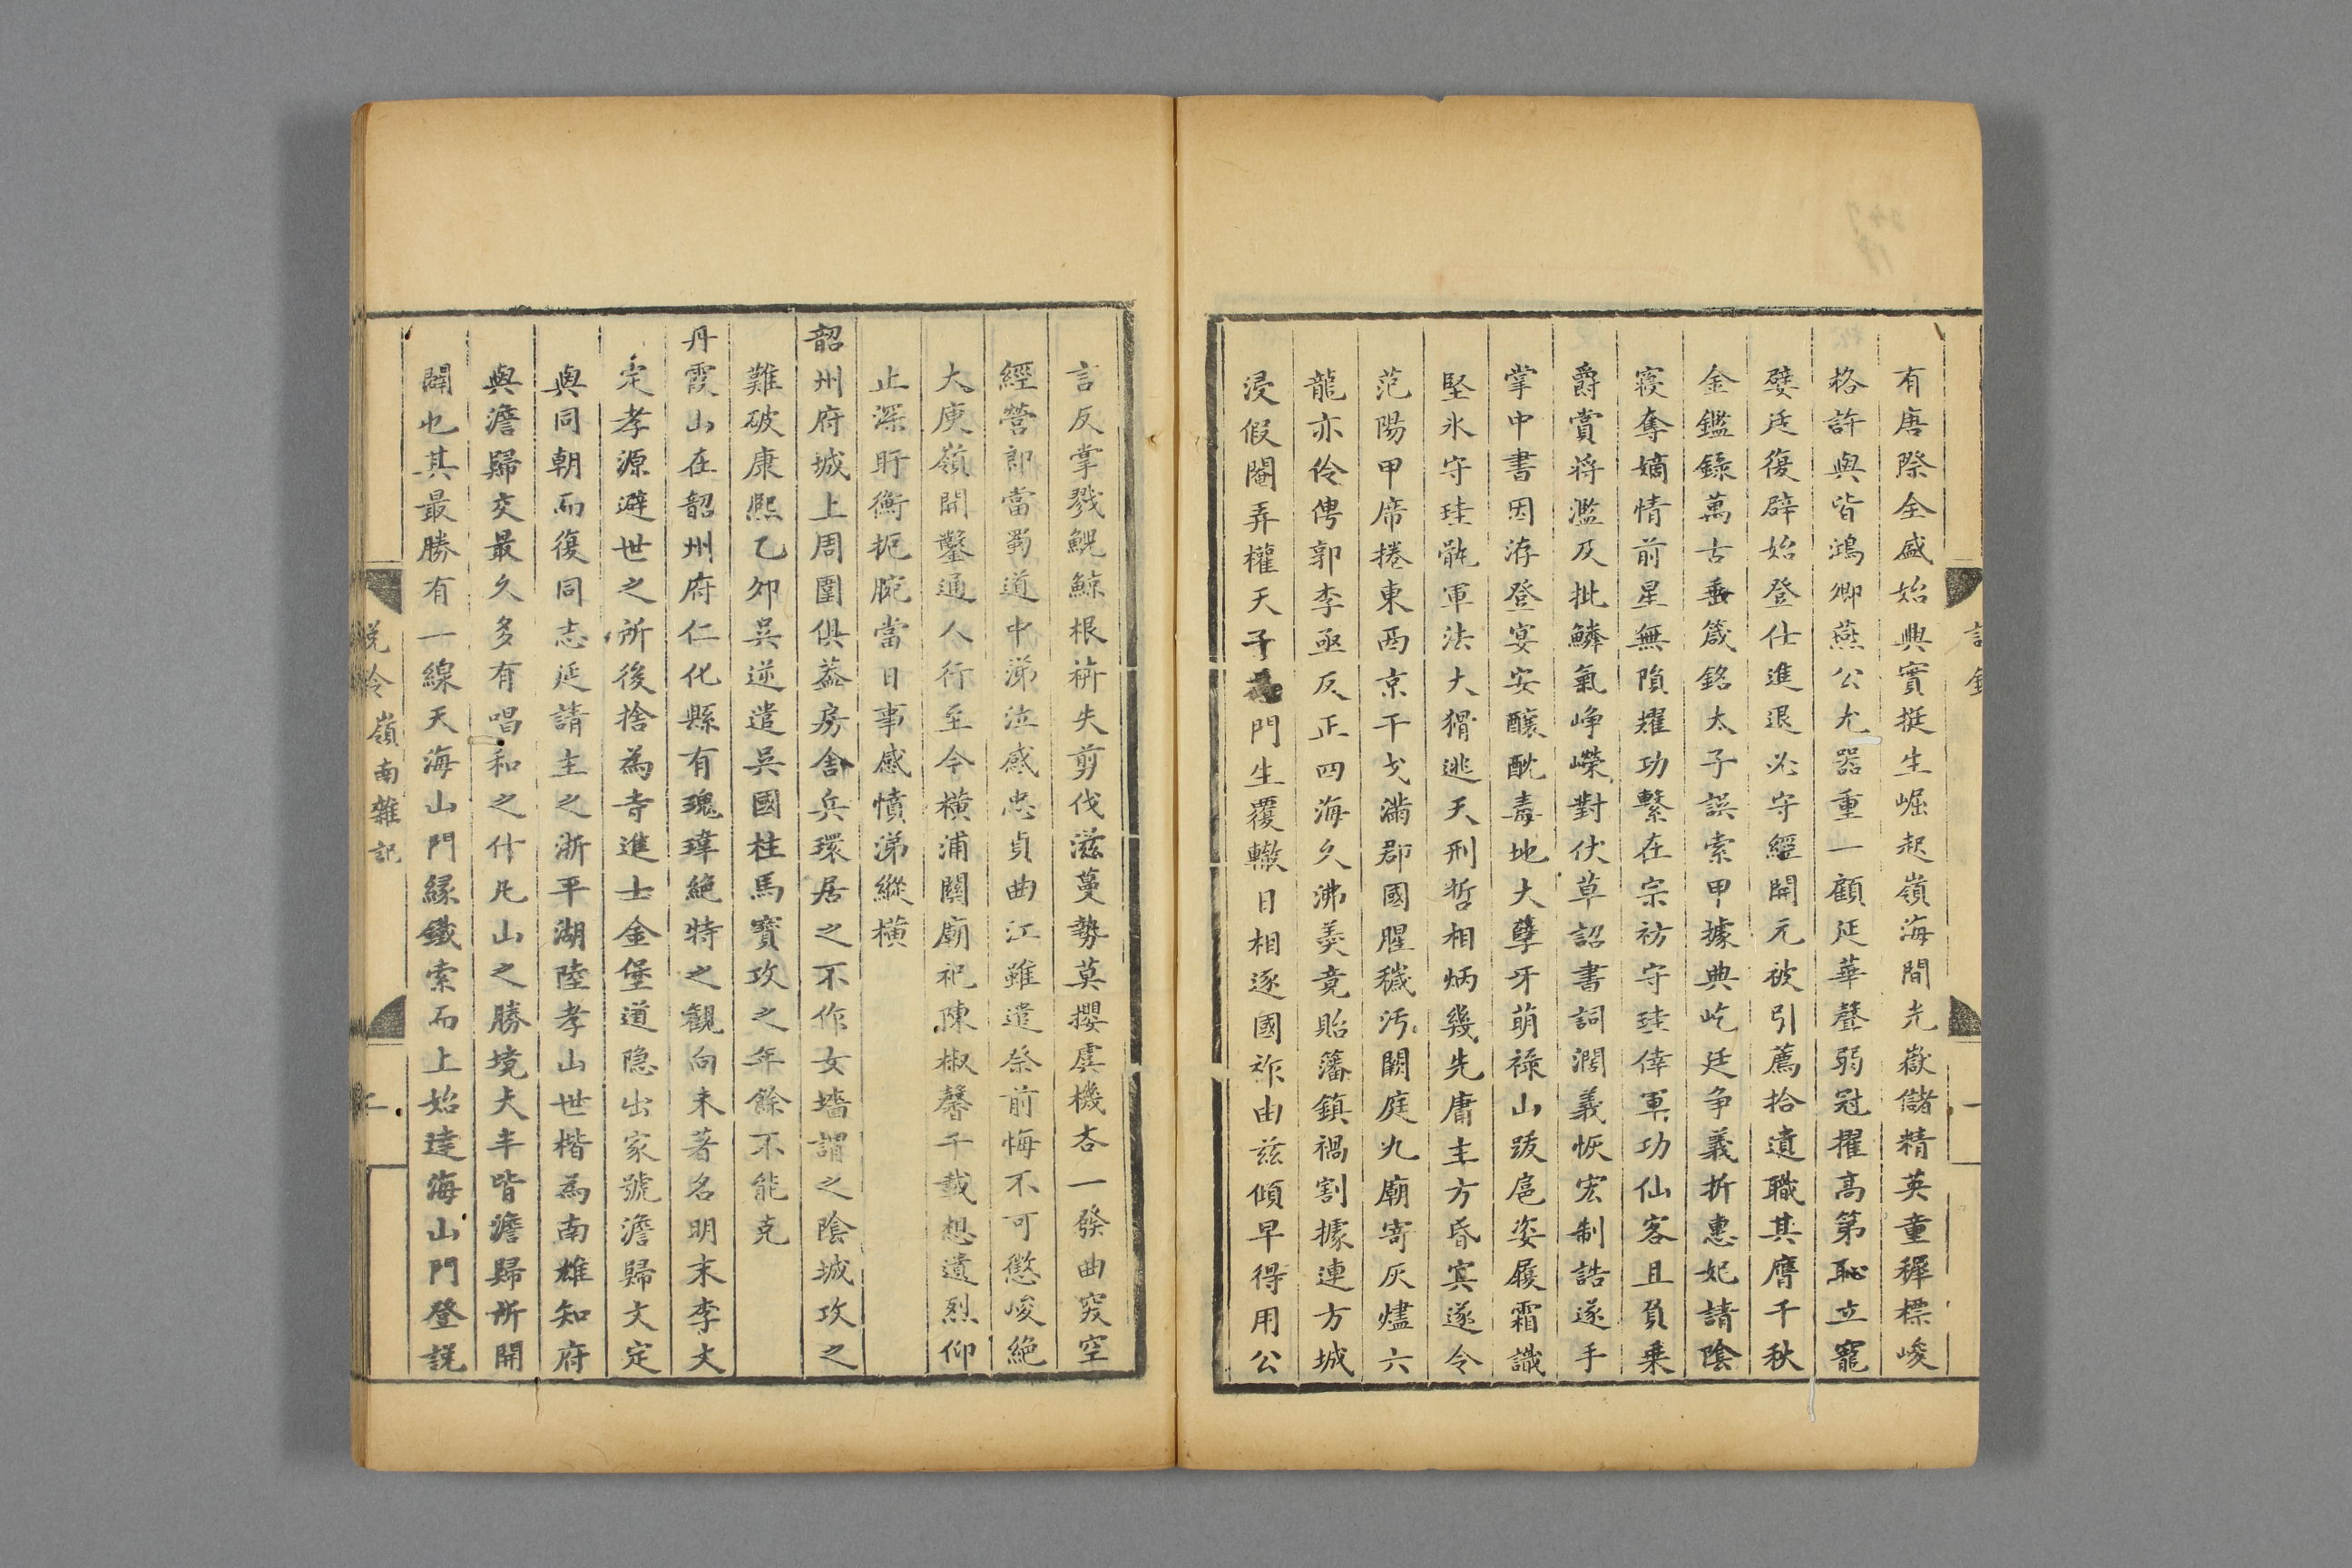 有唐際全盛始興實挺生崛起嶺海間光嶽儲精英童穉標峻
格許與皆鴻卿燕公尤器重一顧延華聲弱冠擢高第恥立寵
嬖廷復辟始登仕進退必守經開元被引薦拾遺職其膺千秋
金鑑錄萬古垂箴銘太子誤索甲據典屹廷争義折惠妃請陰
寢奪嫡情前星無隕耀功繫在宗祊守珪倖軍功仙客且負乗
爵賞将濫及批鱗氣峥嶸對伏草詔書詞濶義恢宏制誥遂手
掌中書因洊登宴安釀酖毒地大孽牙萌禄山跋扈姿履霜識
堅氷守珪骫軍法大猾逃天刑哲相炳幾先庸主方昏㝠遂令
范陽甲席捲東西京干戈滿郡國腥穢汚闕庭九廟寄灰燼六
龍亦伶俜郭李亟反正四海久沸羮竟貽籓鎮禍割據連方城
浸假閹弄權天子為門生覆轍日相逐國祚由兹傾早得用公
言反掌戮鯢鯨根蘖失剪伐滋蔓勢莫攖虞機杏一發曲突空
經營郎當蜀道中涕泣感忠貞曲江雖遣祭前悔不可懲峻絕
大庾嶺開鑿通人行至今横浦關廟祀陳椒馨千載想遺烈仰
止深盱衡扼腕當日事感憤涕縱横
韶州府城上周圍俱葢房舍兵環居之不作女墻謂之陰城攻之
難破康熙乙夘吳逆遣吳國柱馬寳攻之年餘不能克
丹霞山在韶州府仁化縣有瑰瑋絶特之觀向未著名明末李文
定孝源避世之所後捨為寺進士金堡道隐出家號澹歸文定
與同朝而復同志延請主之浙平湖陸孝山世楷為南雄知府
與澹歸交最久多有唱和之什凡山之勝境大半皆澹歸所開
闢也其最勝有一線天海山門緣鐵索而上始達海山門登説
說鈴
嶺南雜記
二